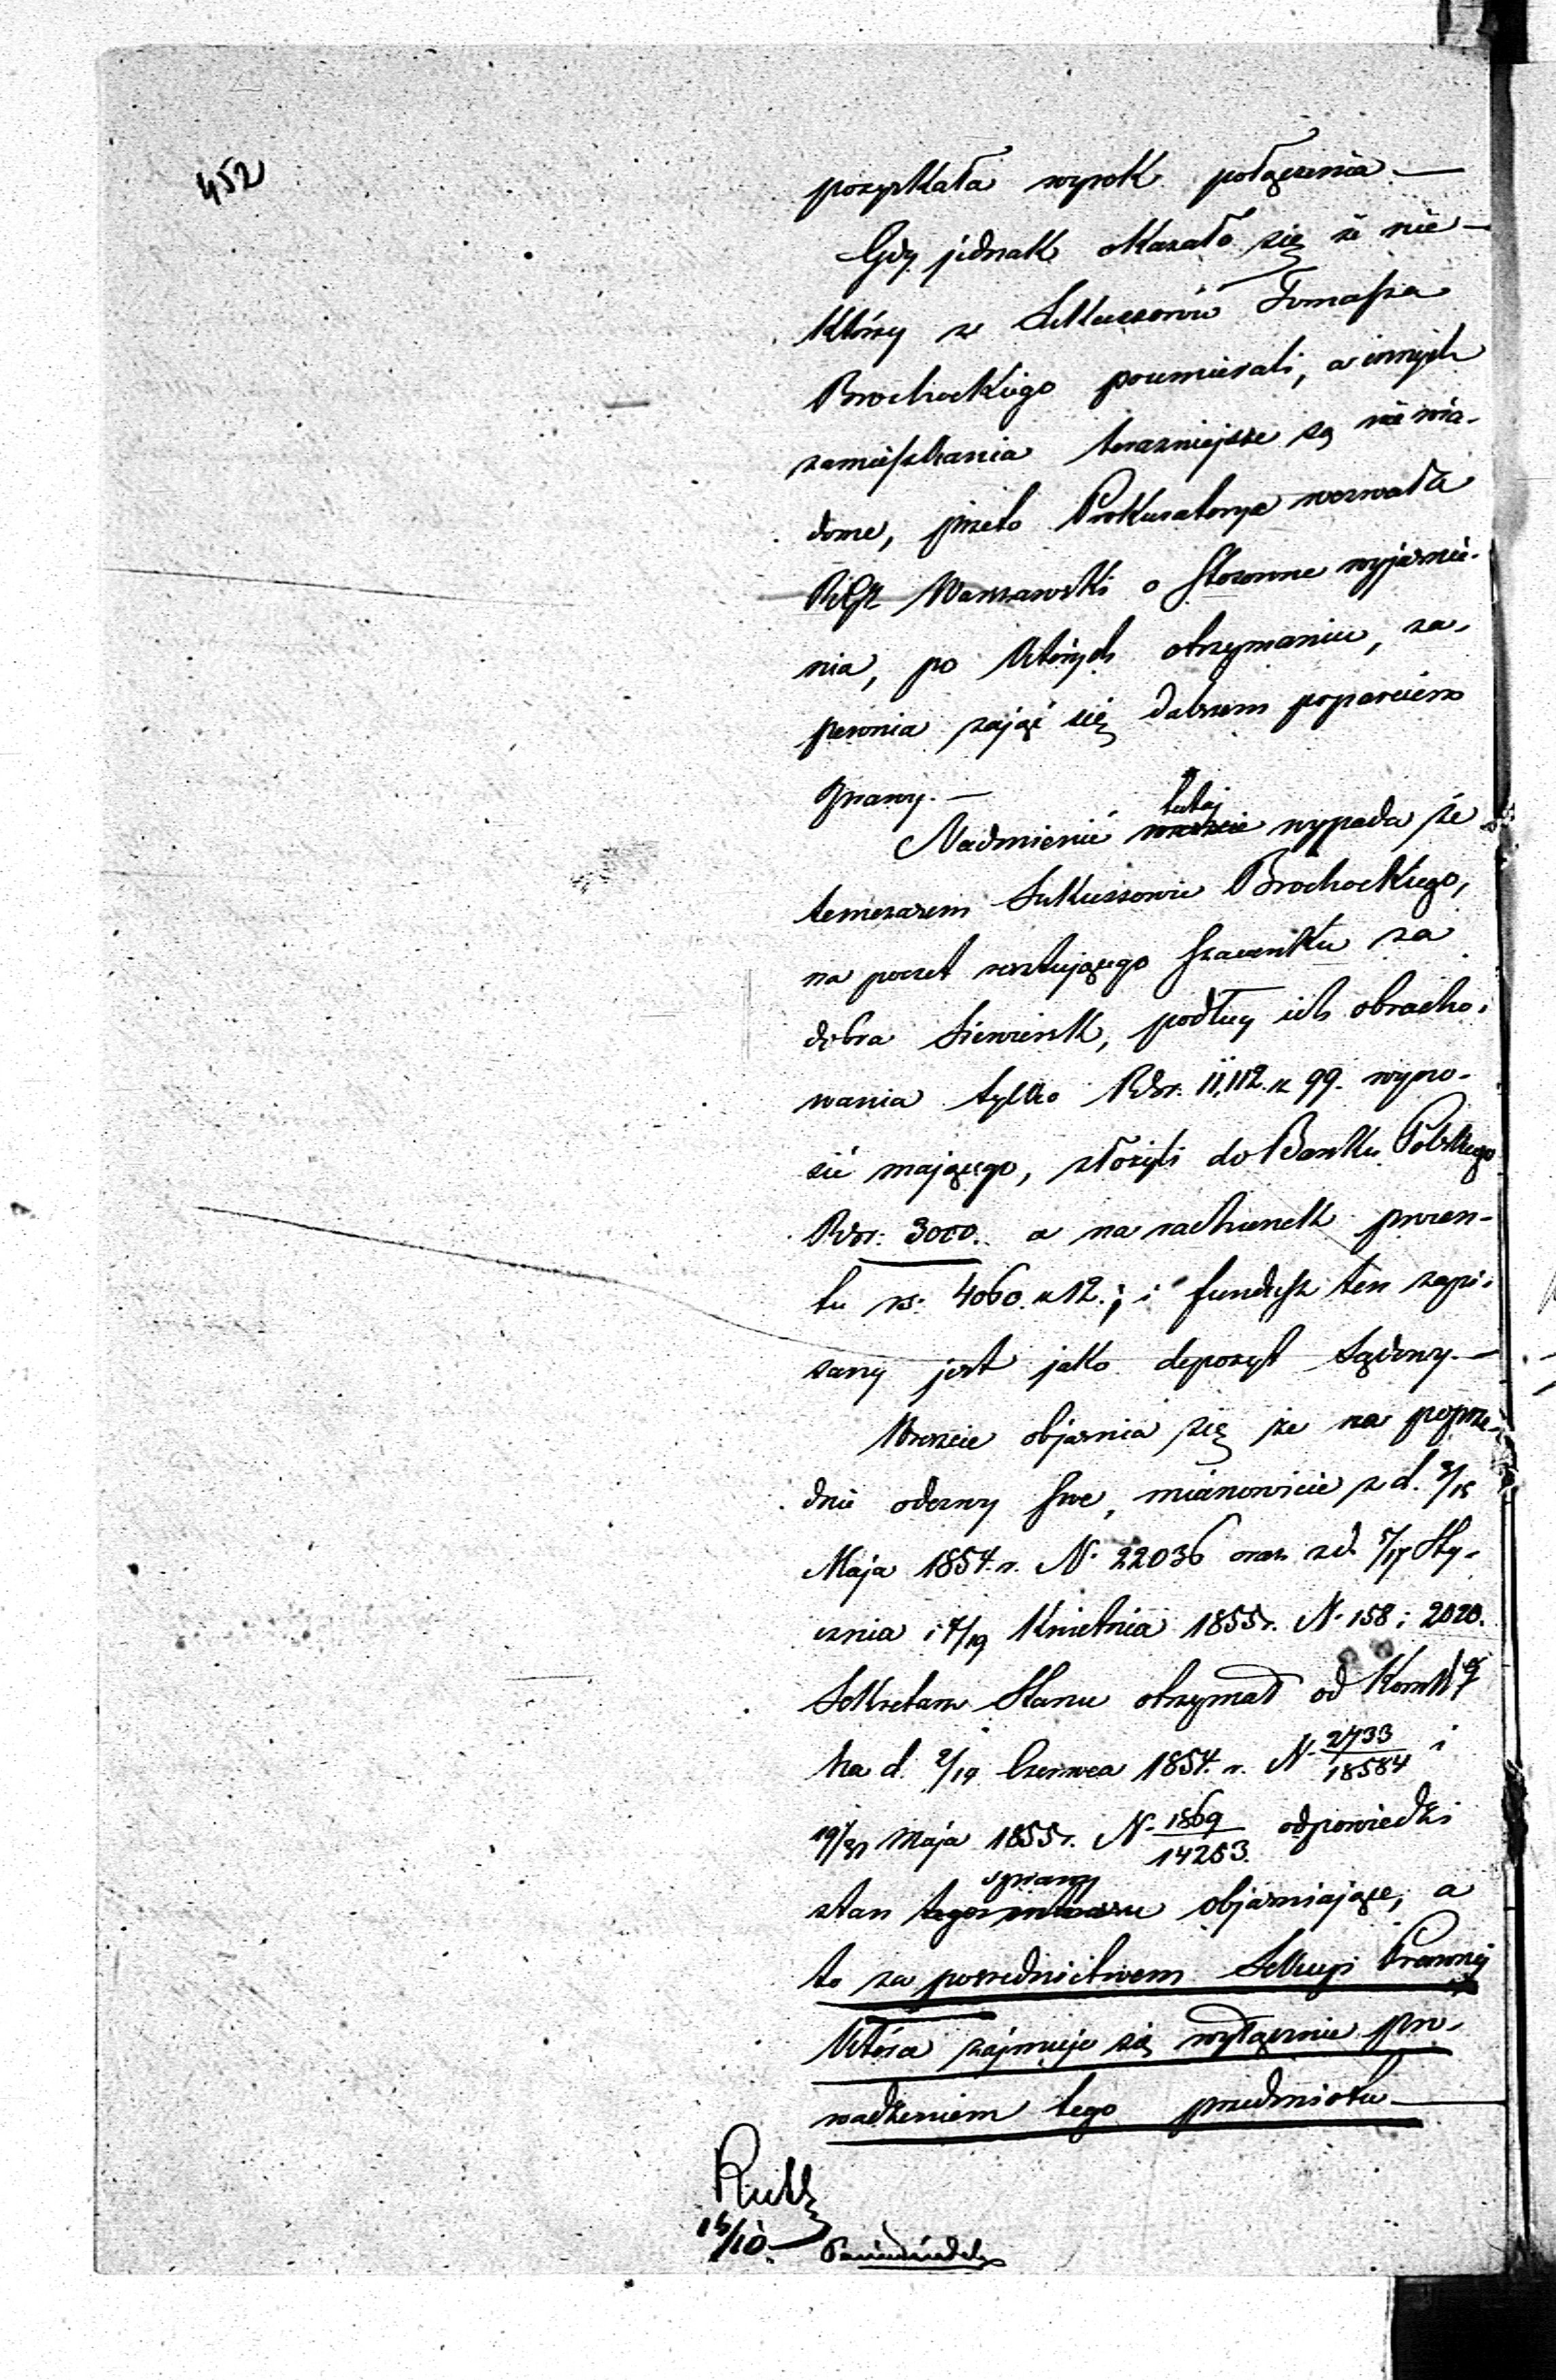 452
pozyskała wyrok połączenia. —
Gdy jednak okazało się że nie-
którzy ze Sukcessorów Tomasza
Brochockiego poumierali, a innych
zamieszkania teraźniejsze są nie wia-
dome, przeto Prokuratorya wezwała
Warszawski o stosowne wyjaśnie-
nia, po których otrzymaniu, za-
pewnia zająć się dalszem poparciem
sprawy. —
Nadmienić tutaj wypada że
temczasem Sukcessorowie Brochockiego,
na poczet resztującego szacunku za
dobra Siewiersk, podług ich obracho-
wania tylko Rsr. 11,112 k 99. wyno-
sić mającego, złożyli do Banku Polskiego
Rsr. 3000. a na rachunek procen-
tu rs. 4060 k 12.; i fundusz ten zapi-
sany jest jako depozyt Sądowy. —
Wreszcie objaśnia się że na poprze-
dnie odezwy swe, mianowicie z d. 3/15
Maja 1854 r. N. 22036 oraz z d. 5/17 Sty-
cznia i 7/19 Kwietnia 1855 r. N. 158 i 2020.
Sekretarz Stanu otrzymał od
d. 2/14 Czerwca 1854. r. N. 2733/18584 i
19/31 Maja 1855 r. N. 1869/14253. odpowiedzi
stan sprawy objaśniające, a
to za pośrednictwem Sekcyi Prawnej
która zajmuje się wyłącznie pro-
wadzeniem tego przedmiotu —
16/10.